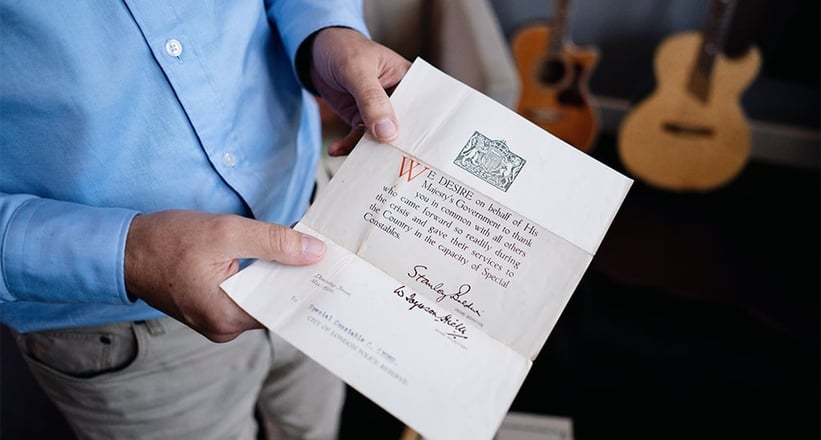 WE DESIRE on behalf of His
Majesty's Government to thank
you in common with all others
who came forward so readily during
the crisis and gave their services to
the Country in the capacity of Special
Constables.
Stanley Baldwin
PRIME MINISTER
W Joynson Hicks
Downing Street
May,
To
Special Constable C.
CITY OF LONDON POLICE RESERVE.